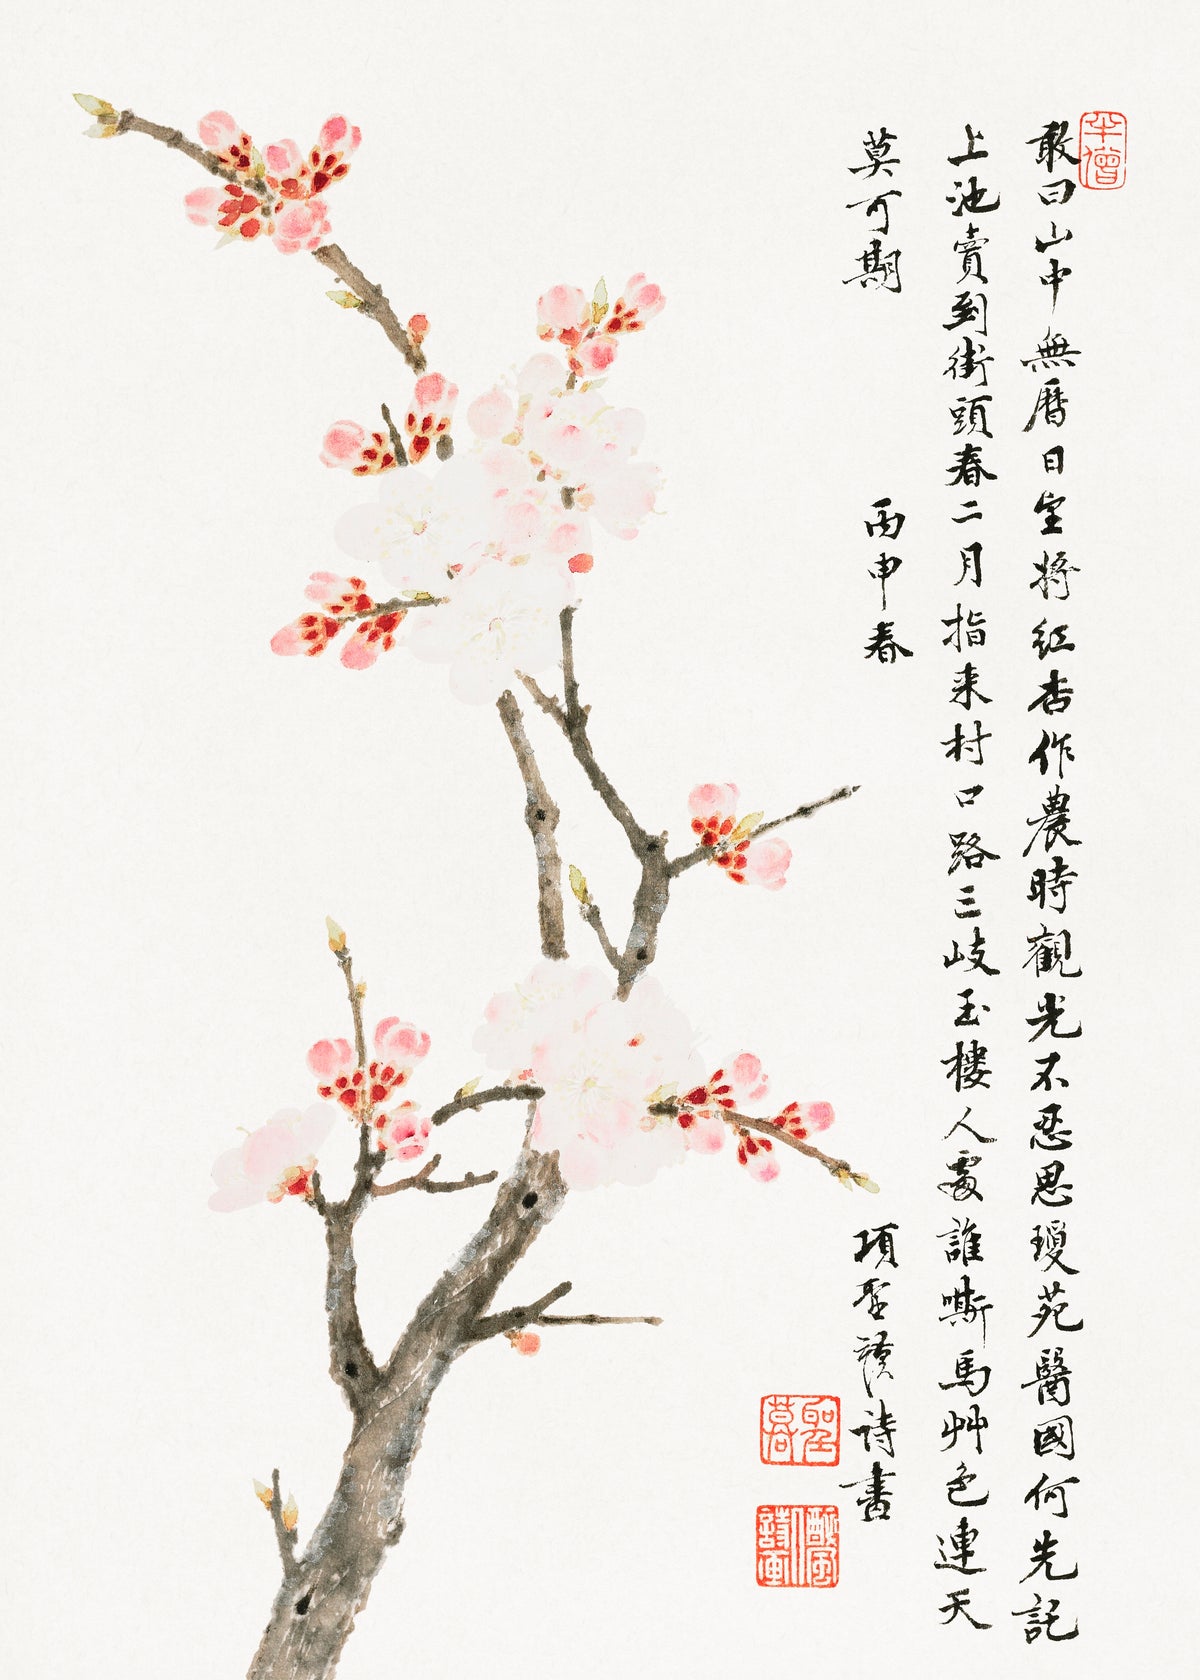 敢曰山中無曆日宜將紅杏作農時觀光不忍思瓊苑醫國何先託
上池賣到街頭春二月指来村口路三岐玉樓人處誰嘶馬艸色連天
莫可期
丙申春
項聖謨詩畫